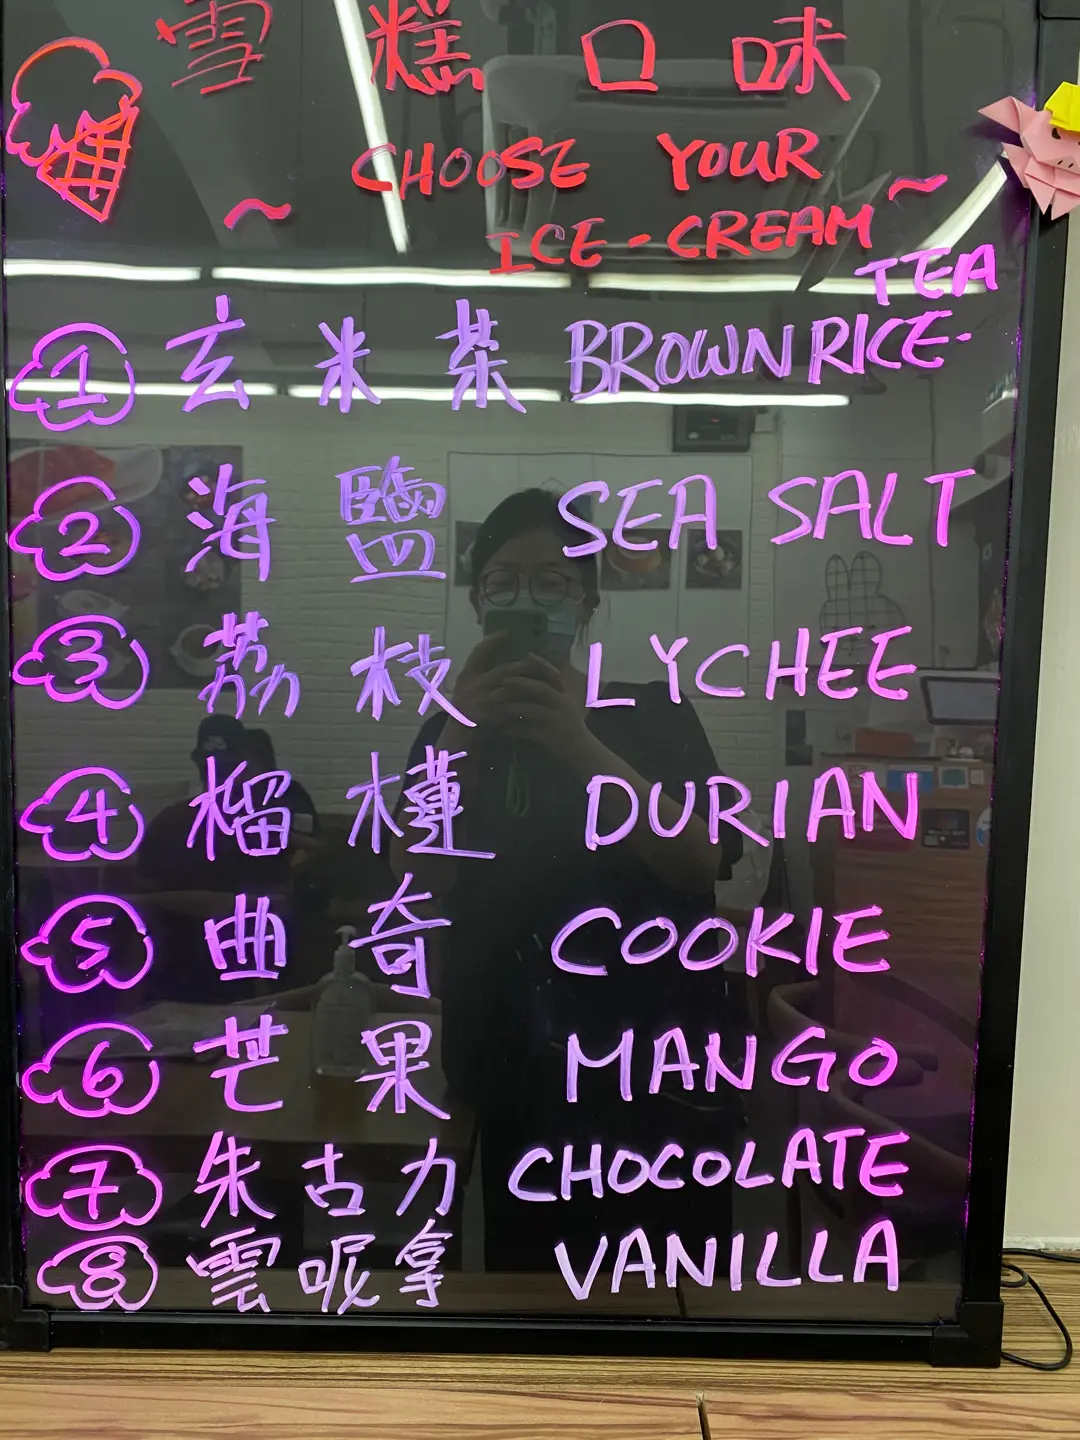 雪糕口味
~ CHOOSE YOUR
ICE-CREAM ~
① 玄米茶 BROWN RICE- TEA
② 海鹽 SEA SALT
③ 荔枝 LYCHEE
④ 榴槤 DURIAN
⑤ 曲奇 COOKIE
⑥ 芒果 MANGO
⑦ 朱古力 CHOCOLATE
⑧ 雲呢拿 VANILLA